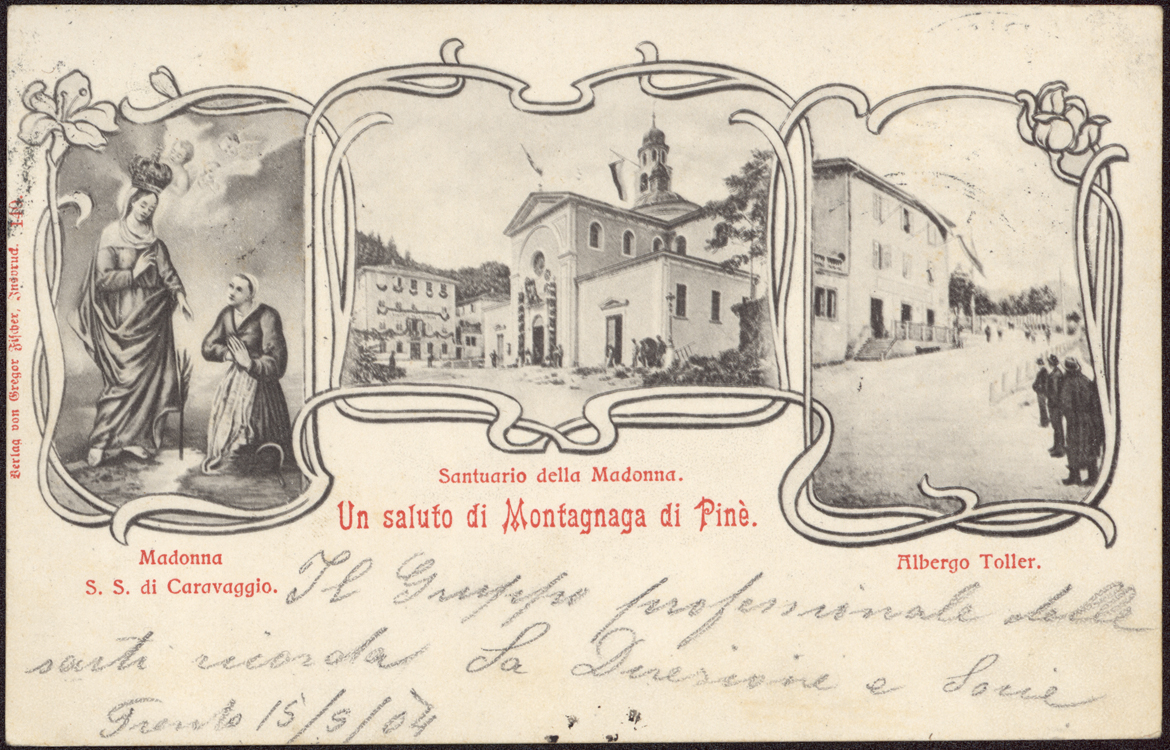 Verlag von Gregor Fischer, Innsbruck. 149
Santuario della Madonna.
Un saluto di Montagnaga di Pinè.
Madonna
S. S. di Caravaggio.
Albergo Toller.
Il Gruppo professionale delle
sarti ricorda La Direzione e Socie
Trento 15/5/04